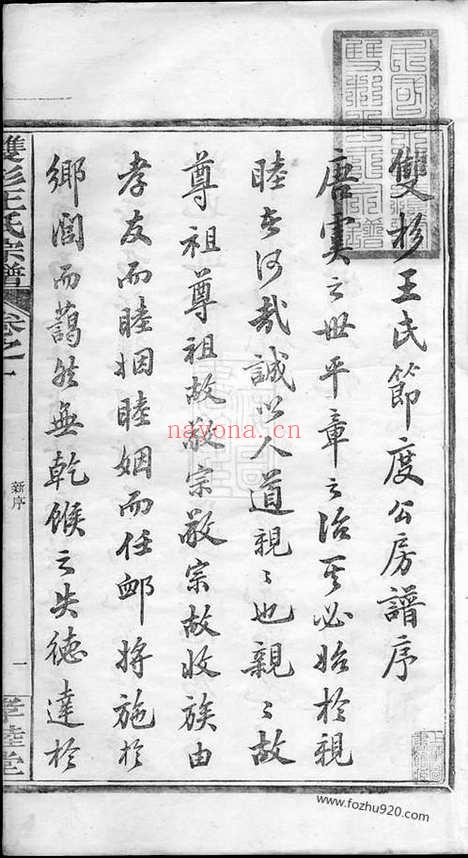 雙杉王氏節度公房譜序
唐虞之世平章之治其必始於親
睦者何哉誠以人道親〻也親〻故
尊祖尊祖故敬宗敬宗故收族由
孝友而睦婣睦婣而任卹將施於
鄉閭而藹然無乾餱之失德達於
雙杉王氏宗譜
卷之一
新序
一
孝睦堂
nayona.cn
www.fozhu920.com